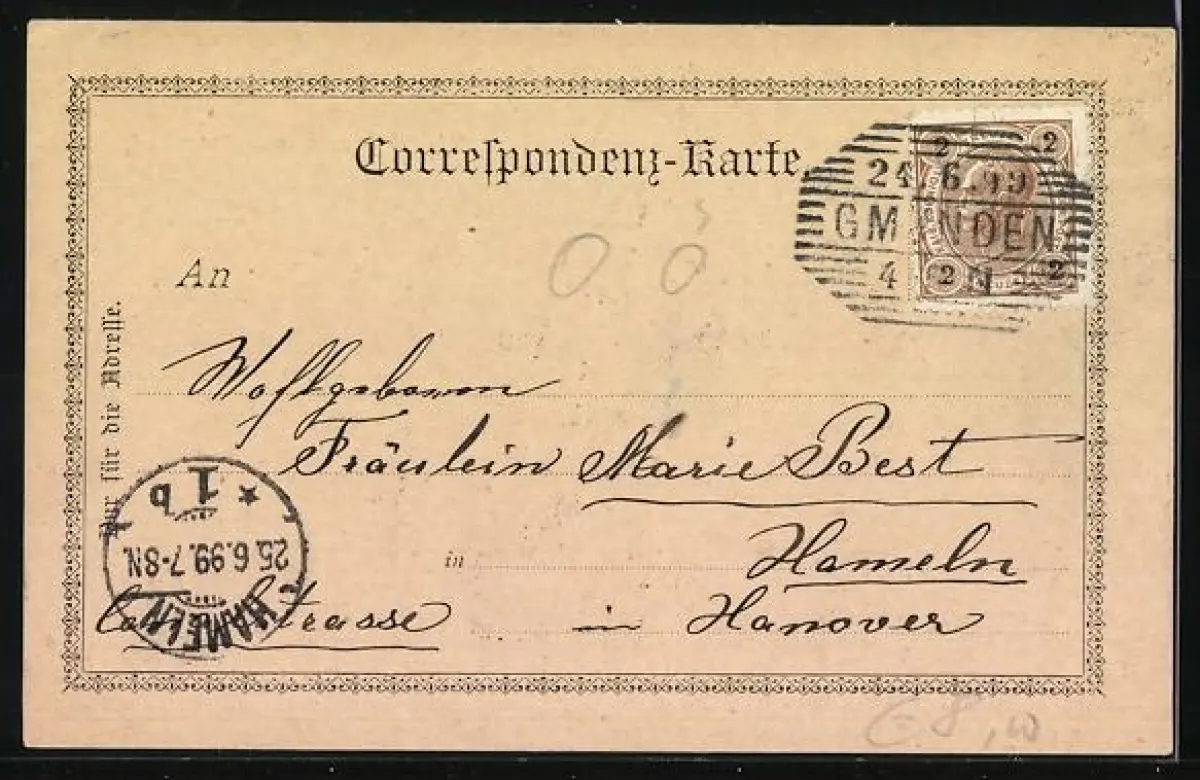 Correspondenz-Karte
2 2
24.6.99
GMUNDEN
4 N
2 2
An
Nur für die Adresse.
Wohlgeboren
Fräulein Marie Best
in Hameln
strasse in Hanover
HAMELN
25.6.99.7-8N.
* 1 b